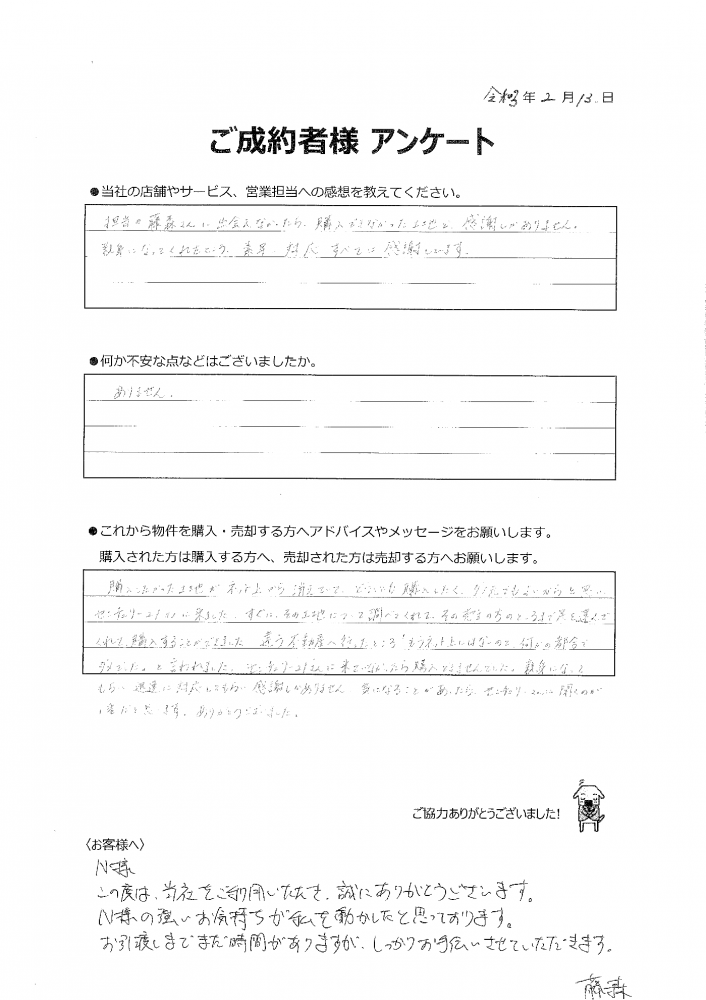 令和3年2月13日
ご成約者様 アンケート
●当社の店舗やサービス、営業担当への感想を教えてください。
担当の藤森さんに出会えなかったら、購入できなかった土地で、感謝しかありません。
親身になってくれるところ、素早い対応、すべてに感謝しています。
●何か不安な点などはございましたか。
ありません。
●これから物件を購入・売却する方へアドバイスやメッセージをお願いします。
購入された方は購入する方へ、売却された方は売却する方へお願いします。
購入したかった土地がネット上から消えていて、どうしても購入したく、ダメでもよいからと思い
センチュリー21さんに来ました。すぐに、その土地について調べてくれて、その売主の方のところまで足を運んで
くれて、購入することができました。違う不動産へ行ったところ「もうネット上にはないので、何かの都合で
ダメでした。」と言われました。センチュリー21さんに来ていなかったら購入できませんでした。親身になって
もらい、迅速に対応してもらい感謝しかありません。気になることがあったら、センチュリーさんに聞くのが
1番だと思います。ありがとうございました。
ご協力ありがとうございました!
〈お客様へ〉
N様
この度は、当社をご利用いただき、誠にありがとうございます。
N様の強いお気持ちが私を動かしたと思っております。
お引渡しまでまだ時間がありますが、しっかりお手伝いさせていただきます。
藤森